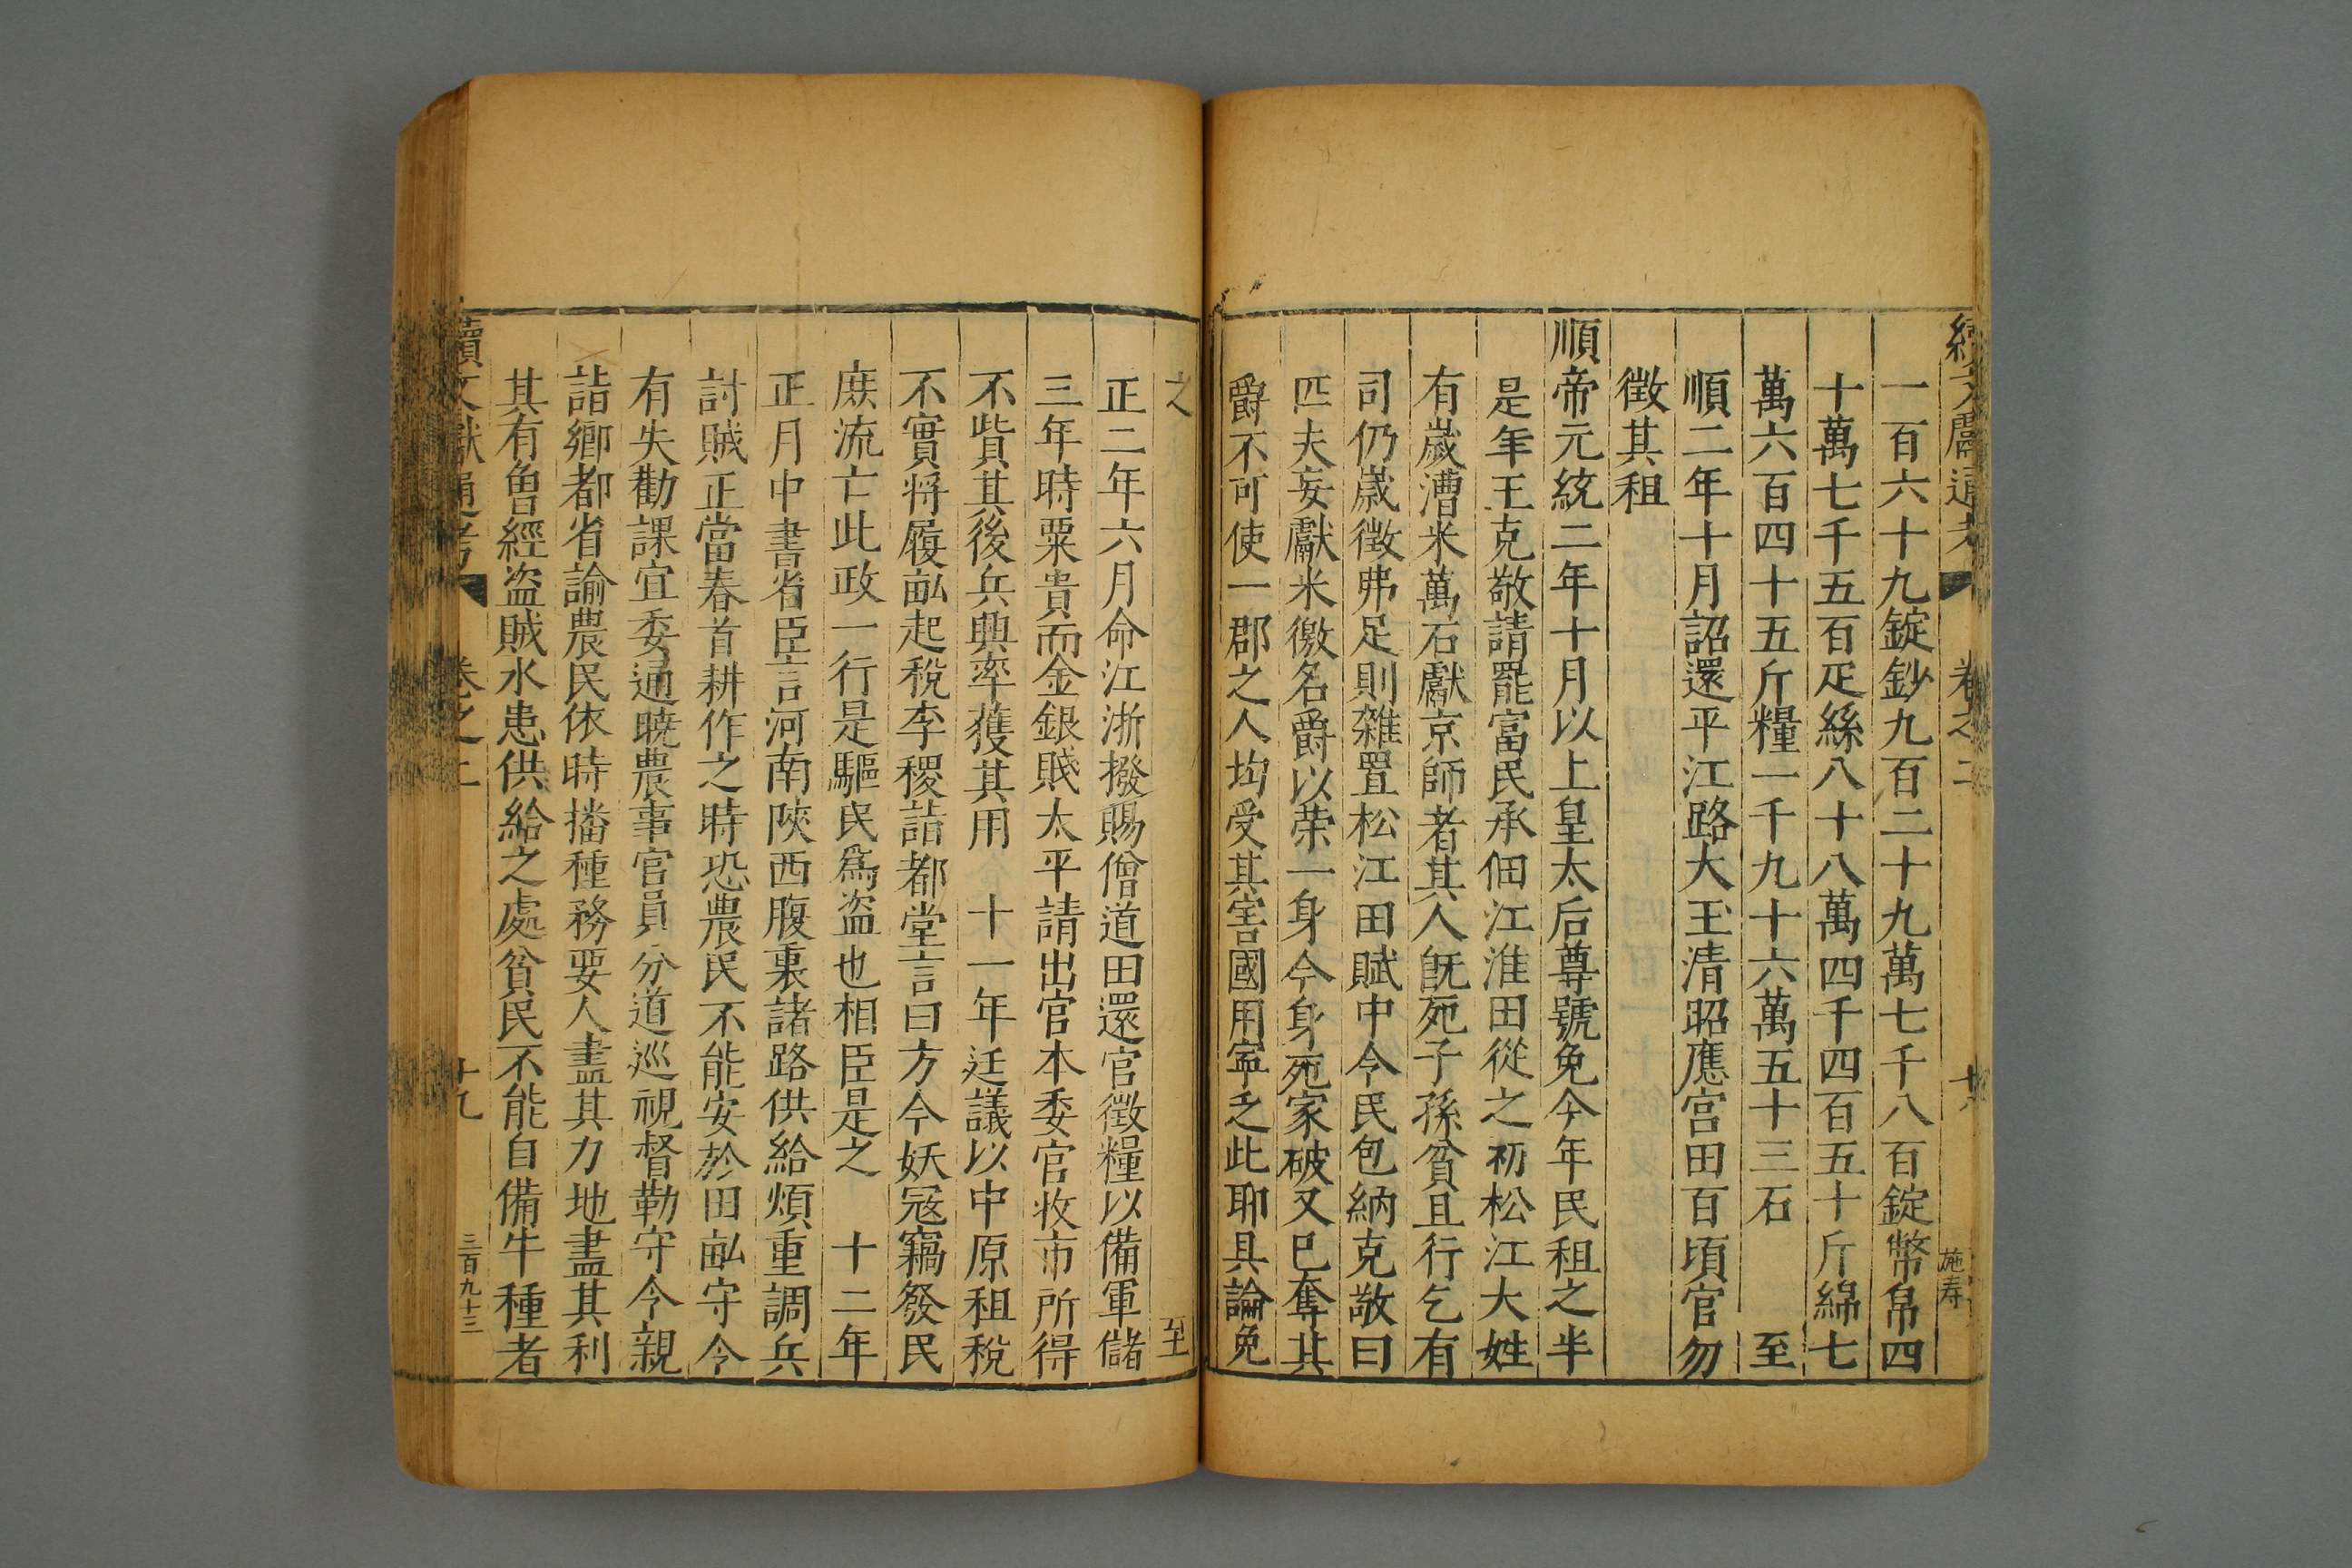 續文獻通考 卷之二 十八 施寿
一百六十九錠鈔九百二十九萬七千八百錠幣帛四
十萬七千五百疋絲八十八萬四千四百五十斤綿七
萬六百四十五斤糧一千九十六萬五十三石 至
順二年十月詔還平江路大玉清昭應宮田百頃官勿
徵其租
順帝元統二年十月以上皇太后尊號免今年民租之半
是年王克敬請罷富民承佃江淮田從之初松江大姓
有歲漕米萬石獻京師者其人旣死子孫貧且行乞有
司仍歲徵弗足則雜置松江田賦中令民包納克敬曰
匹夫妄獻米徼名爵以榮一身今身死家破又已奪其
爵不可使一郡之人均受其害國用寧乏此耶具論免
之 至
正二年六月命江浙撥賜僧道田還官徵糧以備軍儲
三年時粟貴而金銀賤太平請出官本委官收市所得
不貲其後兵興率獲其用 十一年廷議以中原租稅
不實將履畝起稅李稷詣都堂言曰方今妖冦竊發民
庶流亡此政一行是驅民爲盜也相臣是之 十二年
正月中書省臣言河南陜西腹裏諸路供給煩重調兵
討賊正當春首耕作之時恐農民不能安於田畝守令
有失勸課宜委通曉農事官員分道巡視督勒守令親
詣鄉都省諭農民依時播種務要人盡其力地盡其利
其有魯經盜賊水患供給之處貧民不能自備牛種者
續文獻通考 卷之二 十九 三百九十三